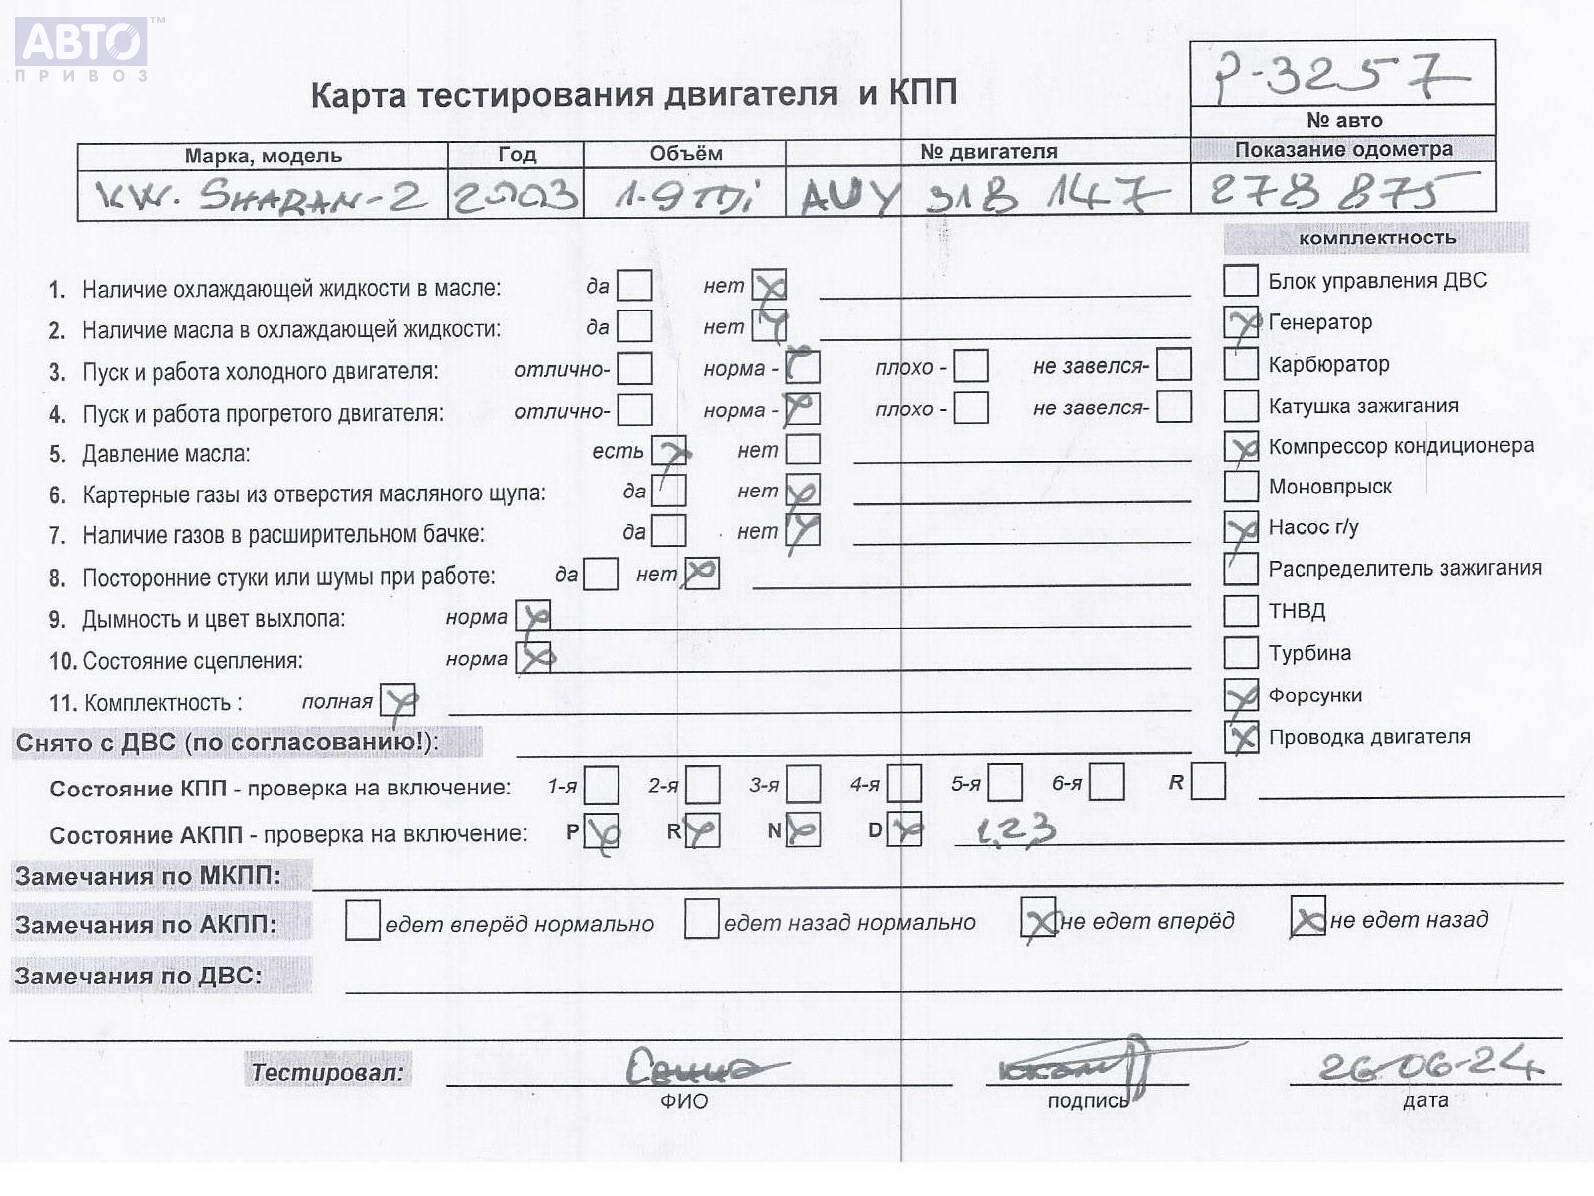 АВТО™
ПРИВОЗ
Р-3257
Карта тестирования двигателя и КПП
№ авто
Марка, модель Год Объём № двигателя Показание одометра
VW. SHARAN-2 2003 1.9 TDi AUY 318 147 278 875
комплектность
1. Наличие охлаждающей жидкости в масле: да нет
Блок управления ДВС
2. Наличие масла в охлаждающей жидкости: да нет
Генератор
3. Пуск и работа холодного двигателя: отлично- норма - плохо - не завелся-
Карбюратор
4. Пуск и работа прогретого двигателя: отлично- норма - плохо - не завелся-
Катушка зажигания
5. Давление масла: есть нет
Компрессор кондиционера
6. Картерные газы из отверстия масляного щупа: да нет
Моновпрыск
7. Наличие газов в расширительном бачке: да нет
Насос г/у
8. Посторонние стуки или шумы при работе: да нет
Распределитель зажигания
9. Дымность и цвет выхлопа: норма
ТНВД
10. Состояние сцепления: норма
Турбина
11. Комплектность : полная
Форсунки
Снято с ДВС (по согласованию!):
Проводка двигателя
Состояние КПП - проверка на включение: 1-я 2-я 3-я 4-я 5-я 6-я R
Состояние АКПП - проверка на включение: P R N D 1,2,3
Замечания по МКПП:
Замечания по АКПП: едет вперёд нормально едет назад нормально не едет вперёд не едет назад
Замечания по ДВС:
Тестировал: 26-06-24
ФИО подпись дата